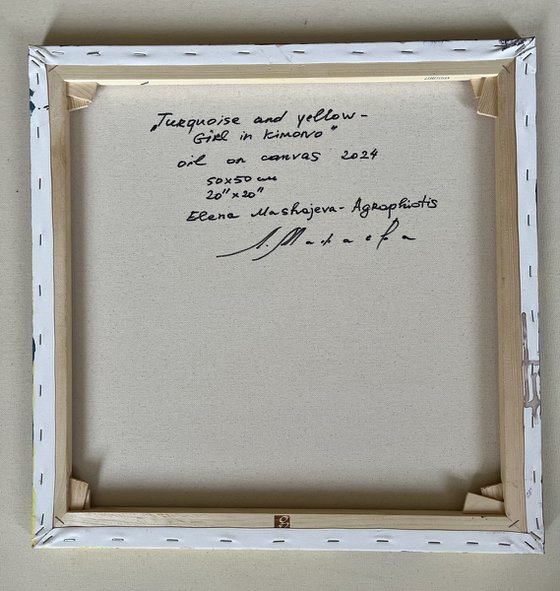 „Turquoise and yellow-
Girl in kimono"
oil on canvas 2024
50x50 cm
20" x 20"
Elena Mashajeva-Agraphiotis